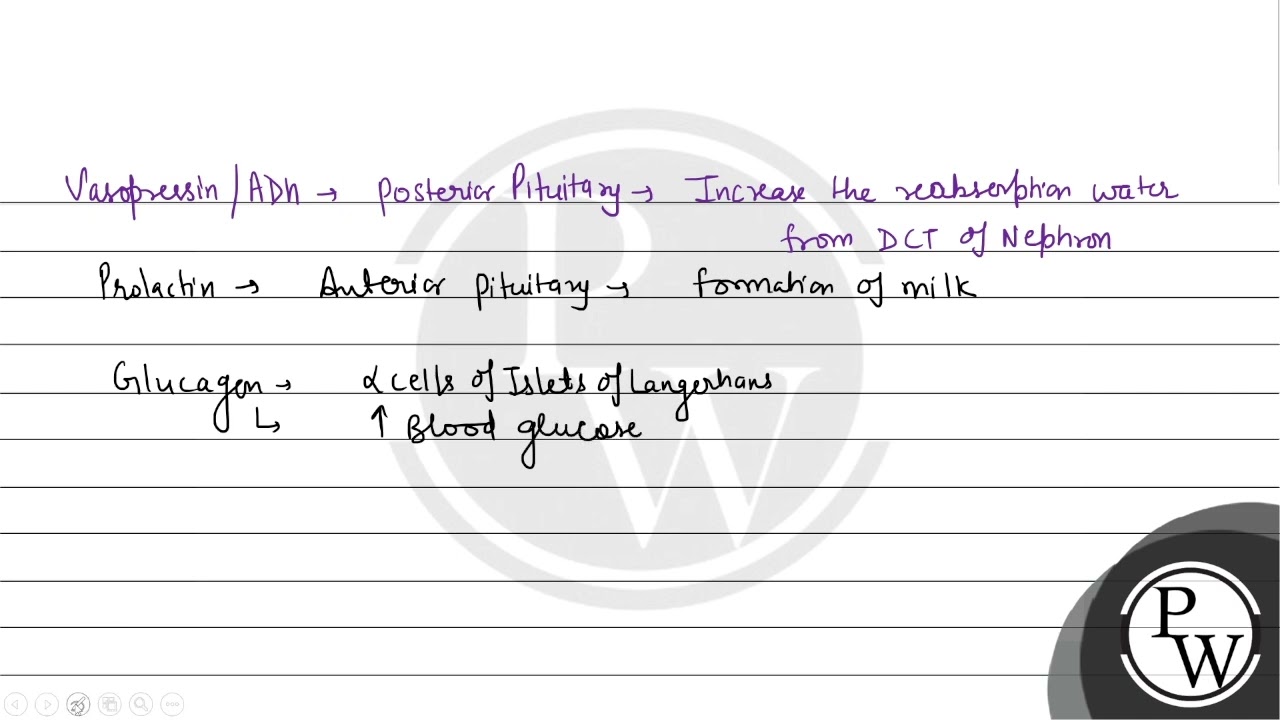 Vasopressin/ADh → Posterior Pituitary → Increase the reabsorption water
from DCT of Nephron
Prolactin → Anterior pituitary → formation of milk
Glucagon → α cells of Islets of Langerhans
↳ ↑ Blood glucose
PW
PW